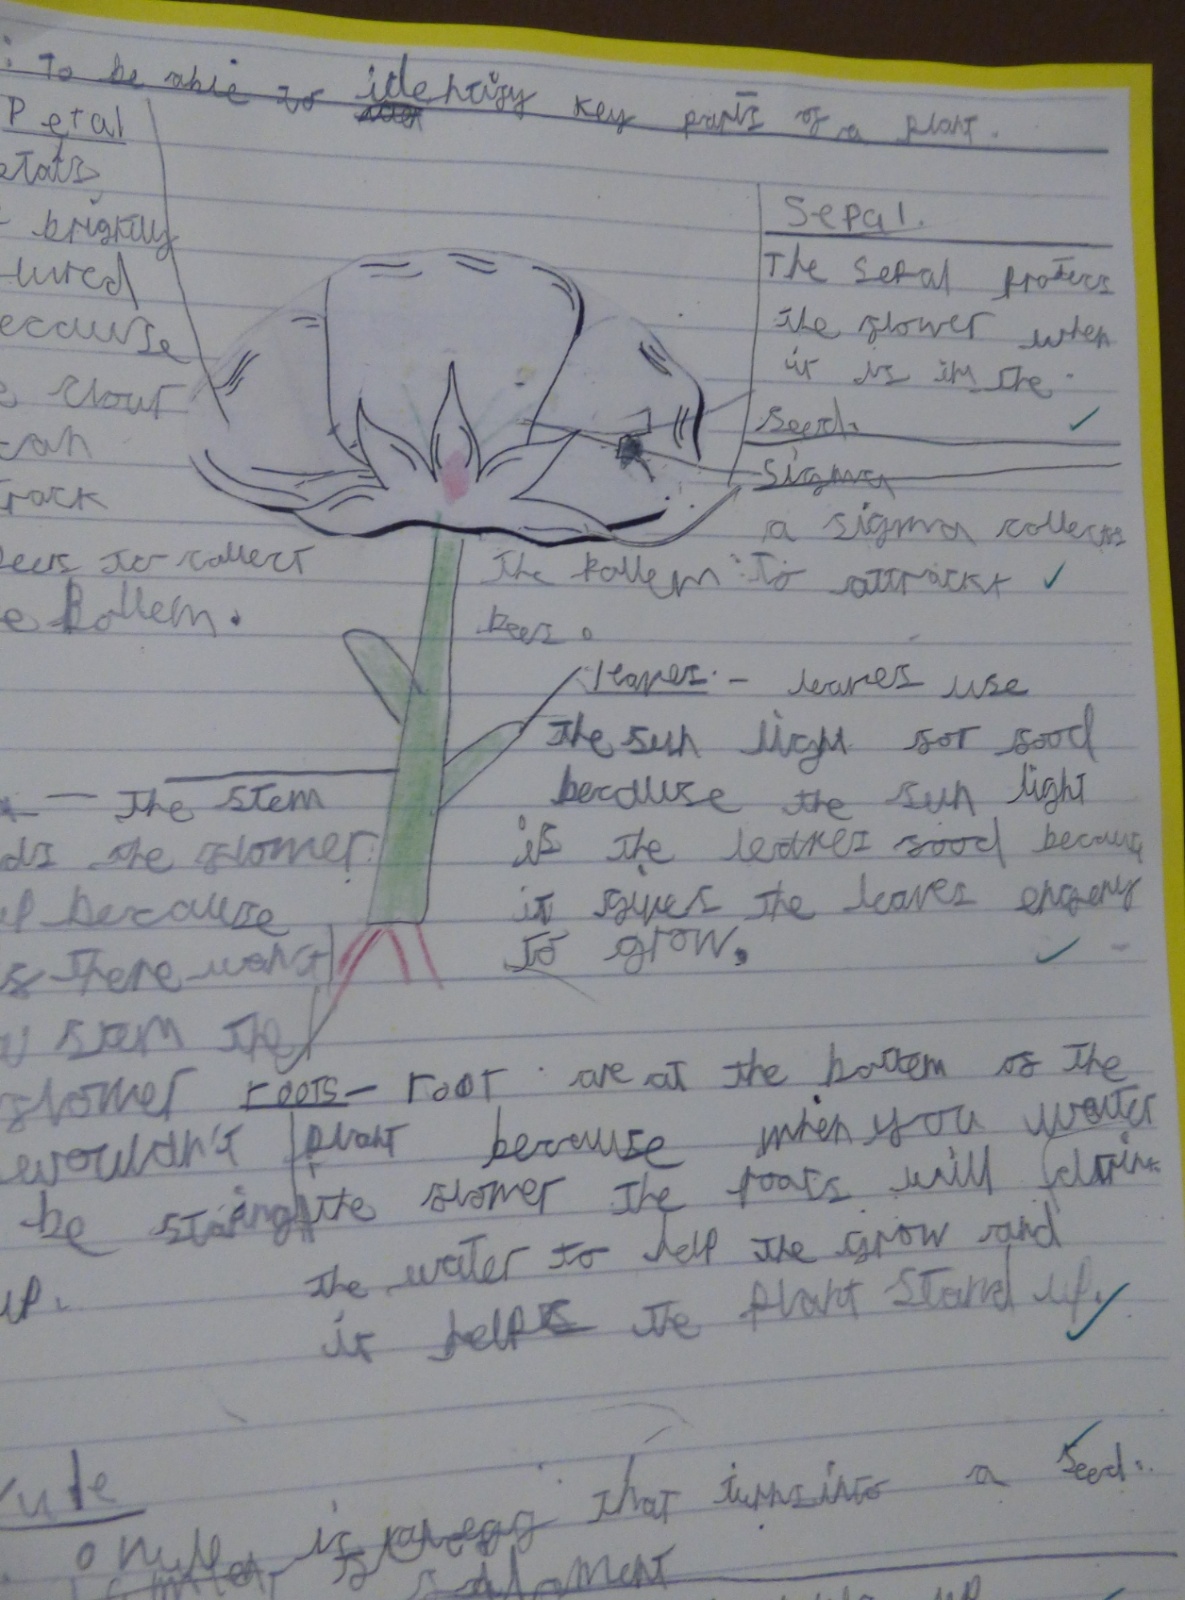 : To be able to identify key parts of a plant.
Petal
brightly
ecause
can
rack
to collect
e Pollem.
Sepal.
The sepal protects
the flower when
it is in the
seed.
Sigma
a sigma collects
the Pollem to attrackt
bees.
leaves - leaves use
the sun light for food
because the sun light
is the leaves food because
it gives the leaves
to grow.
— the stem
the flower
because
there
stem the
flower
wouldn't
be
up.
roots - root are at the bottem of the
plant because when you water
the flower the roots will drink
the water to help the grow and
it helps the plant stand up.
vule
ovule is an egg that turns into a seed.